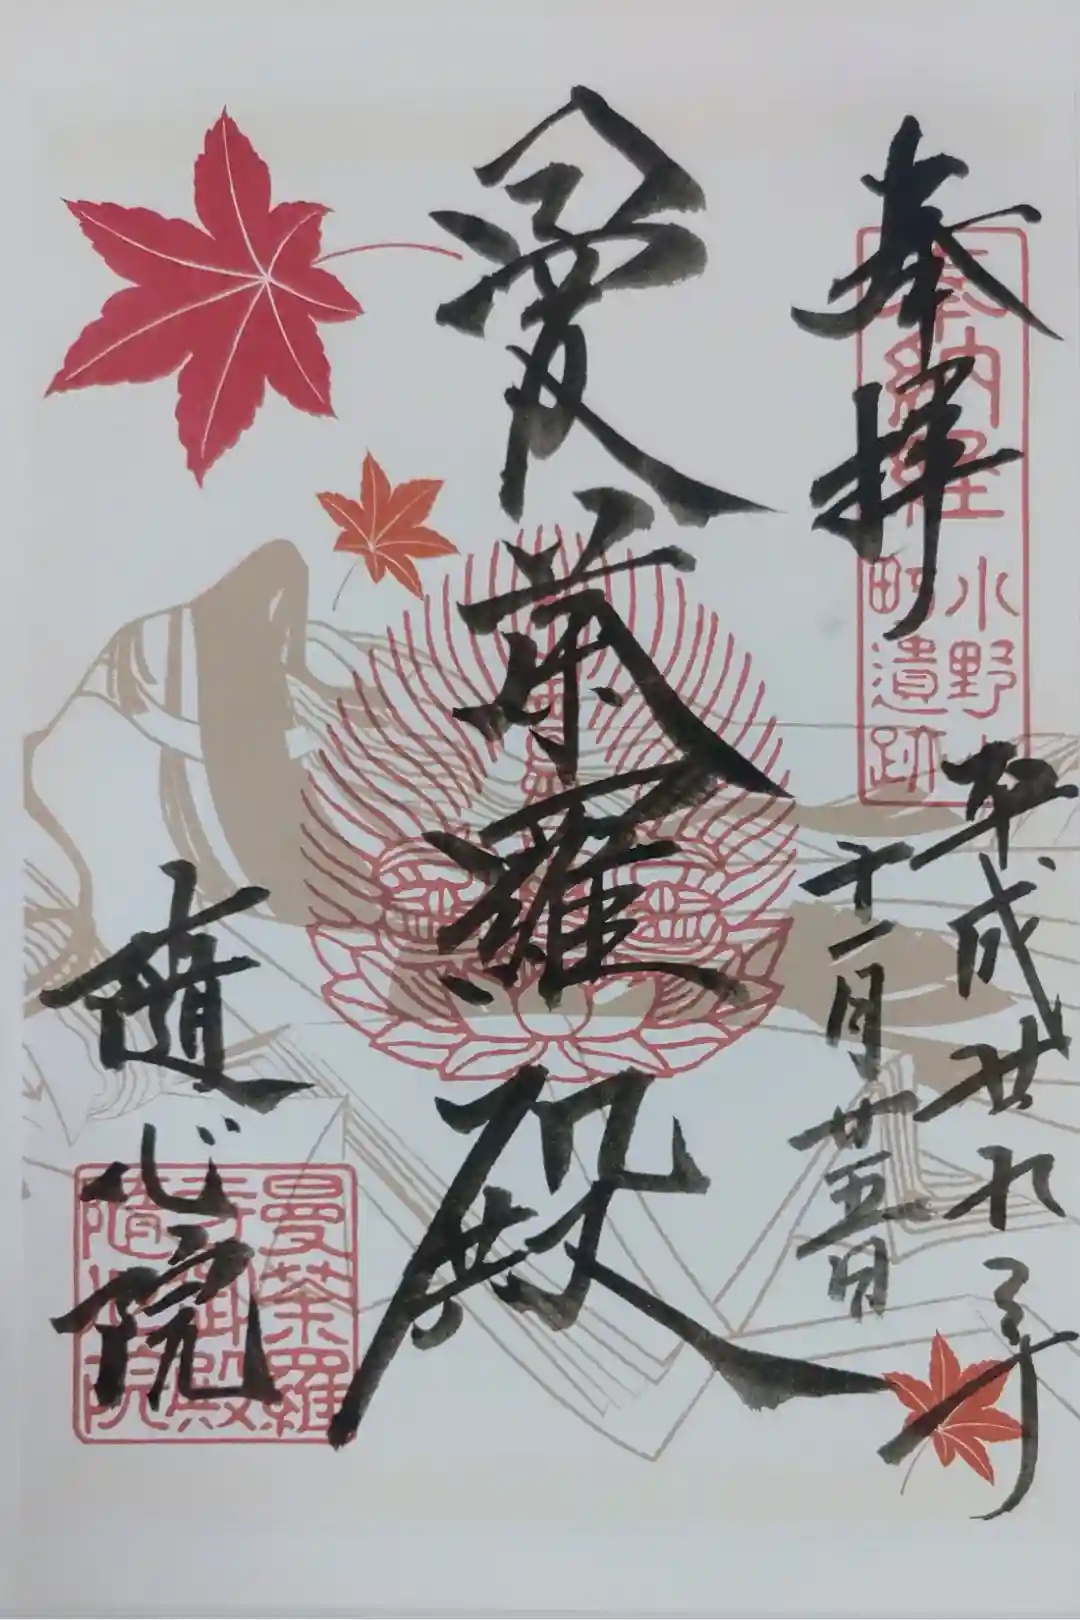 奉拝
奉納経
小野小
町遺跡
平成廿九年
十一月廿五日
曼荼羅殿
隨心院
曼荼羅
寺御殿
隨心院